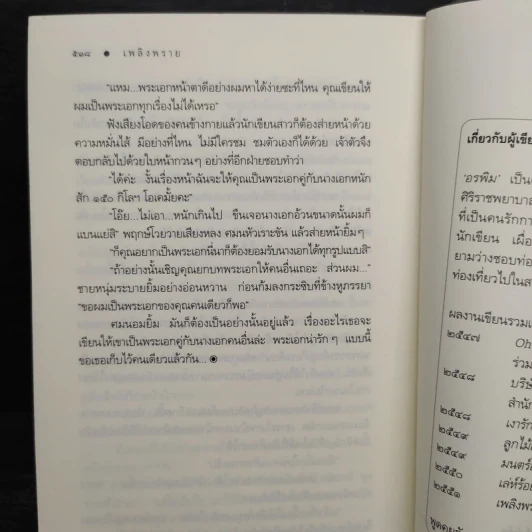 ๕๓๘ ● เพลิงพราย
“แหม...พระเอกหน้าตาดีอย่างผมหาได้ง่ายซะที่ไหน คุณเขียนให้
ผมเป็นพระเอกทุกเรื่องไม่ได้เหรอ”
ฟังเสียงโอดของคนข้างกายแล้วนักเขียนสาวก็ต้องส่ายหน้าด้วย
ความหมั่นไส้ มีอย่างที่ไหน ไม่มีใครชม ชมตัวเองก็ได้ด้วย เจ้าตัวจึง
ตอบกลับไปด้วยใบหน้ากวนๆ อย่างที่อีกฝ่ายชอบทำว่า
“ได้ค่ะ งั้นเรื่องหน้าฉันจะให้คุณเป็นพระเอกคู่กับนางเอกหนัก
สัก ๑๕๐ กิโลฯ โอเคมั้ยคะ”
“โอ๊ย...ไม่เอา...หนักเกินไป ขืนเจอนางเอกอ้วนขนาดนั้นผมก็
แบนแย่สิ” พฤกษ์โวยวายเสียงหลง ศมนหัวเราะขัน แล้วส่ายหน้ายิ้มๆ
“ก็คุณอยากเป็นพระเอกนี่นาก็ต้องยอมรับนางเอกได้ทุกรูปแบบสิ”
“ถ้าอย่างนั้นเชิญคุณยกบทพระเอกให้คนอื่นเถอะ ส่วนผม...”
ชายหนุ่มระบายยิ้มอย่างอ่อนหวาน ก่อนก้มลงกระซิบที่ข้างหูภรรยา
“ขอผมเป็นพระเอกของคุณคนเดียวก็พอ”
ศมนอมยิ้ม มันก็ต้องเป็นอย่างนั้นอยู่แล้ว เรื่องอะไรเธอจะ
เขียนให้เขาเป็นพระเอกคู่กับนางเอกคนอื่นล่ะ พระเอกน่ารักๆ แบบนี้
ขอเธอเก็บไว้คนเดียวแล้วกัน...
เกี่ยวกับผู้เขีย
‘อรพิม’ เป็น
ศิริราชพยาบาล
ที่เป็นคนรักกา
นักเขียน เผื่อ
ยามว่างชอบท่อ
ท่องเที่ยวไปใน
ผลงานเขียนรวมเ
๒๕๔๗ Oh
ร่วม
๒๕๔๘ บริษั
สำนัก
๒๕๔๘ เงารัก
๒๕๔๙ ลูกไม้
๒๕๔๙ มนตร์
๒๕๕๐ เล่ห์ร้อย
๒๕๕๑ เพลิงพร